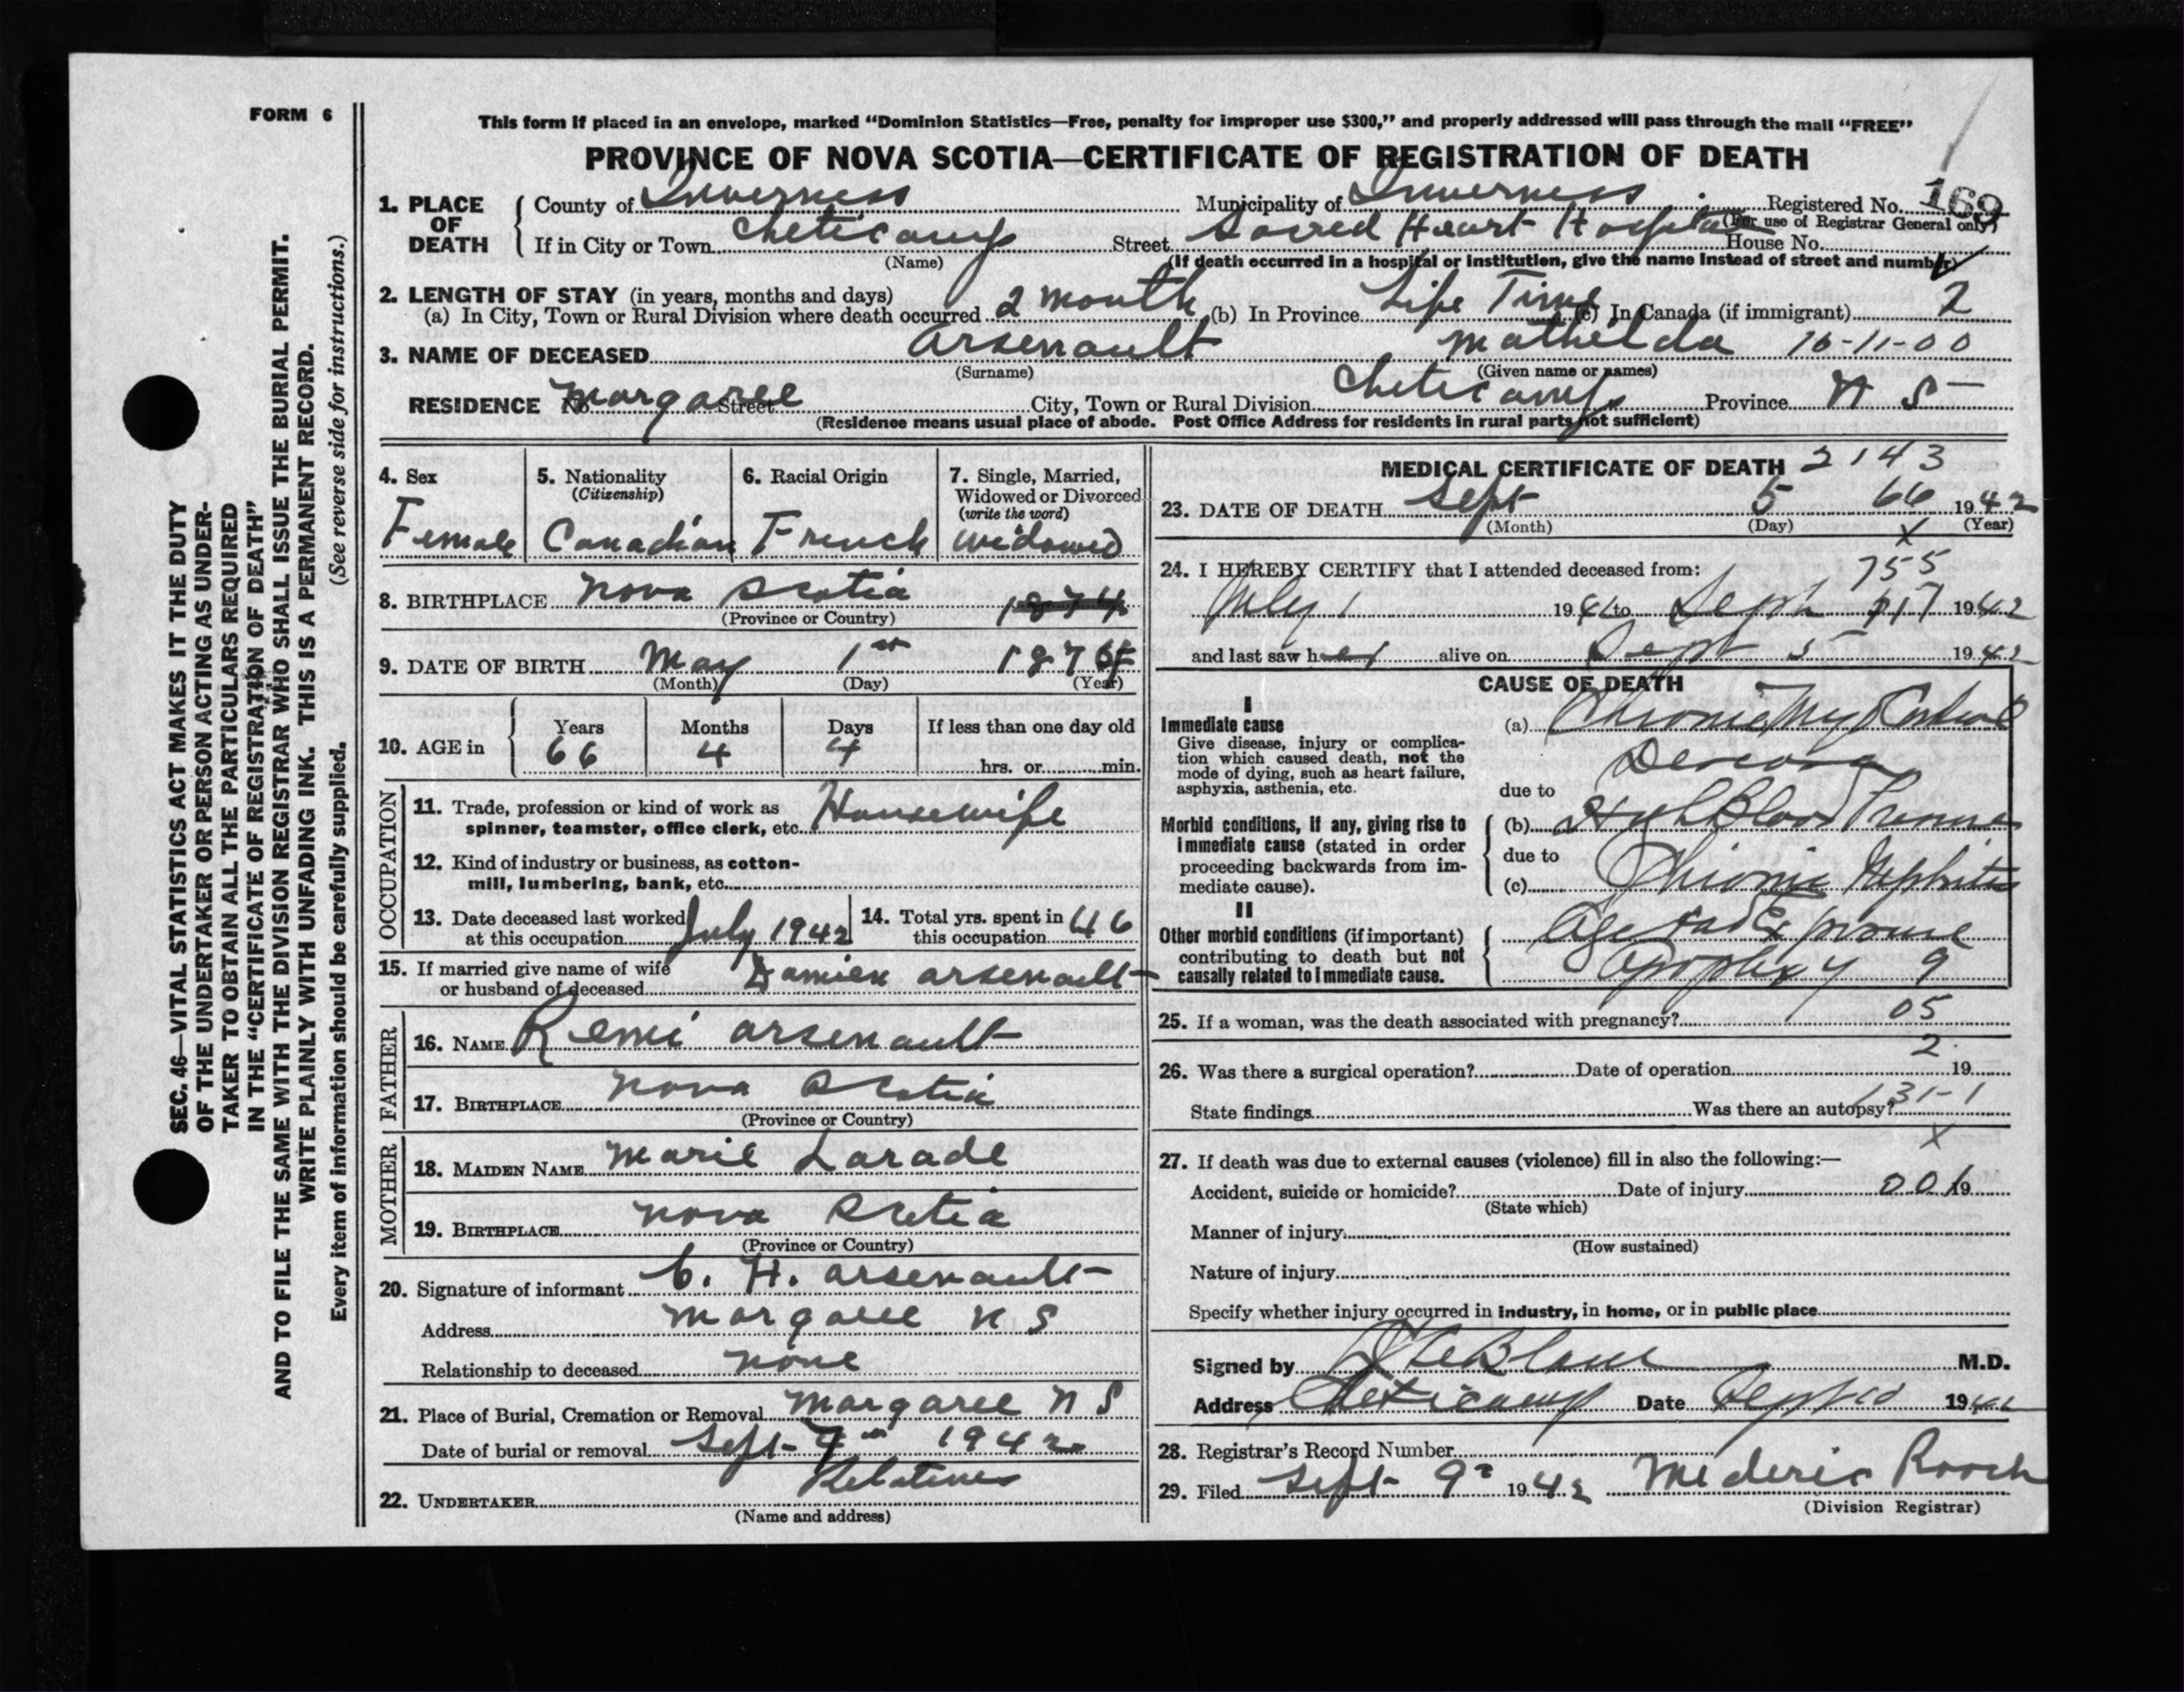 FORM 6
This form if placed in an envelope, marked “Dominion Statistics—Free, penalty for improper use $300,” and properly addressed will pass through the mail “FREE”
PROVINCE OF NOVA SCOTIA—CERTIFICATE OF REGISTRATION OF DEATH
SEC. 46—VITAL STATISTICS ACT MAKES IT THE DUTY
OF THE UNDERTAKER OR PERSON ACTING AS UNDER-
TAKER TO OBTAIN ALL THE PARTICULARS REQUIRED
IN THE “CERTIFICATE OF REGISTRATION OF DEATH”
AND TO FILE THE SAME WITH THE DIVISION REGISTRAR WHO SHALL ISSUE THE BURIAL PERMIT.
WRITE PLAINLY WITH UNFADING INK. THIS IS A PERMANENT RECORD.
Every item of information should be carefully supplied. (See reverse side for instructions.)
1. PLACE OF DEATH
County of Inverness Municipality of Inverness Registered No. 169
(For use of Registrar General only)
If in City or Town Cheticamp Street Sacred Heart Hospital House No.
(Name) (If death occurred in a hospital or institution, give the name instead of street and number)
2. LENGTH OF STAY (in years, months and days)
(a) In City, Town or Rural Division where death occurred 2 month (b) In Province Life Time (c) In Canada (if immigrant) 2
3. NAME OF DECEASED Arsenault Mathilda 16-11-00
(Surname) (Given name or names)
RESIDENCE No. Margaree Street City, Town or Rural Division Cheticamp Province N S
(Residence means usual place of abode. Post Office Address for residents in rural parts not sufficient)
4. Sex
Female
5. Nationality
(Citizenship)
Canadian
6. Racial Origin
French
7. Single, Married,
Widowed or Divorced
(write the word)
widowed
8. BIRTHPLACE Nova Scotia 1874
(Province or Country)
9. DATE OF BIRTH May 1st 187
(Month) (Day) (Year)
10. AGE in
Years Months Days If less than one day old
66 4 4 hrs. or min.
OCCUPATION
11. Trade, profession or kind of work as
spinner, teamster, office clerk, etc. Housewife
12. Kind of industry or business, as cotton-
mill, lumbering, bank, etc.
13. Date deceased last worked
at this occupation July 1942
14. Total yrs. spent in
this occupation 46
15. If married give name of wife
or husband of deceased Damien Arsenault
FATHER
16. NAME Remi Arsenault
17. BIRTHPLACE Nova Scotia
(Province or Country)
MOTHER
18. MAIDEN NAME Marie Larade
19. BIRTHPLACE Nova Scotia
(Province or Country)
20. Signature of informant C. H. Arsenault
Address Margaree N S
Relationship to deceased none
21. Place of Burial, Cremation or Removal Margaree N S
Date of burial or removal Sept- 7th 1942
22. UNDERTAKER Relatives
(Name and address)
MEDICAL CERTIFICATE OF DEATH 2143
23. DATE OF DEATH Sept 5 66 1942
(Month) (Day) (Year)
X
24. I HEREBY CERTIFY that I attended deceased from: 755
July 1 194 to Sept 1942
and last saw her alive on Sept 5 1942
CAUSE OF DEATH
I
Immediate cause
Give disease, injury or complica-
tion which caused death, not the
mode of dying, such as heart failure,
asphyxia, asthenia, etc.
(a) Chronic Myocardial
due to
Morbid conditions, if any, giving rise to
immediate cause (stated in order
proceeding backwards from im-
mediate cause).
(b) High Blood Pressure
due to
(c) Chronic Nephritis
II
Other morbid conditions (if important)
contributing to death but not
causally related to immediate cause.
Age and Exposure
Apoplexy 9
25. If a woman, was the death associated with pregnancy? 05
2
26. Was there a surgical operation? Date of operation 19
State findings Was there an autopsy? 131-1
X
27. If death was due to external causes (violence) fill in also the following:—
Accident, suicide or homicide? Date of injury 001 19
(State which)
Manner of injury
(How sustained)
Nature of injury
Specify whether injury occurred in industry, in home, or in public place
Signed by LeBlanc M.D.
Address Cheticamp Date Sept 10 194
28. Registrar's Record Number
29. Filed Sept- 9 1942 Mederic Roach
(Division Registrar)